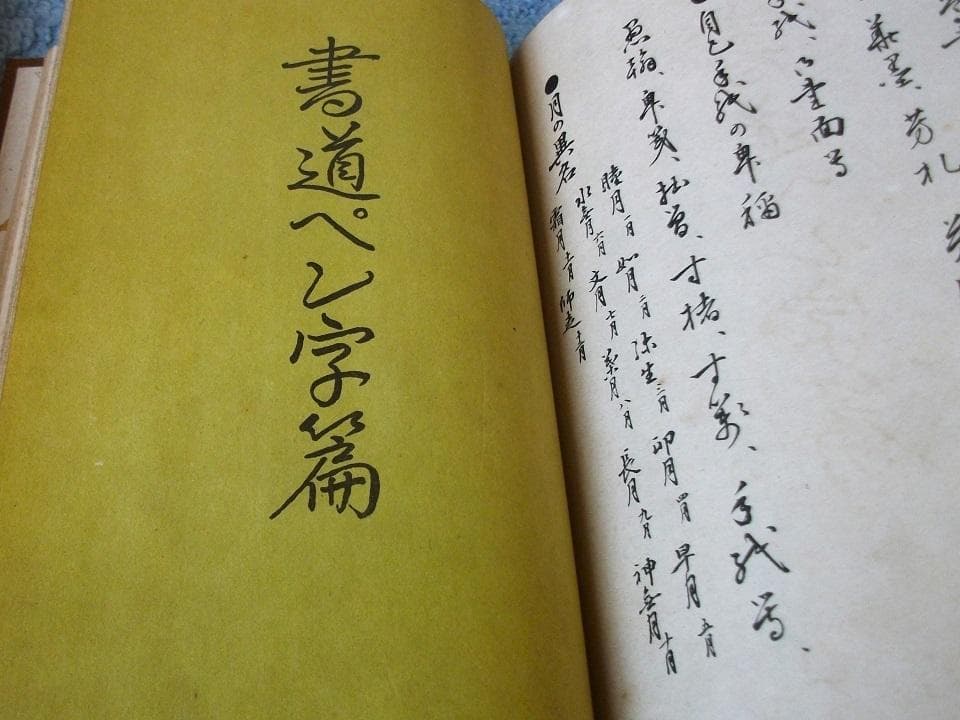 華墨、芳札
手紙、御書面等
●自己手紙の卑稱
愚翰、卑箋、拙書、寸楮、寸箋、手紙等、
●月の異名
睦月一月 如月二月 弥生三月 卯月四月 早月五月
水無月六月 文月七月 葉月八月 長月九月 神無月十月
霜月十一月 師走十二月
書道ペン字篇